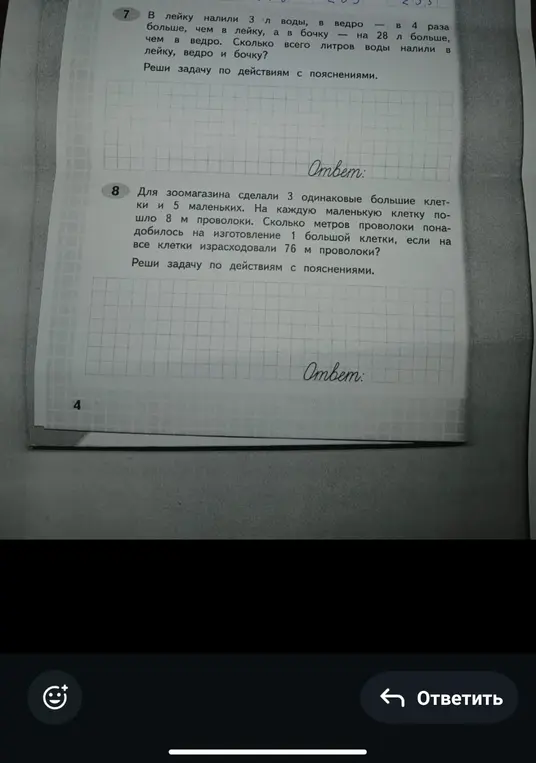 7 В лейку налили 3 л воды, в ведро — в 4 раза
больше, чем в лейку, а в бочку — на 28 л больше,
чем в ведро. Сколько всего литров воды налили в
лейку, ведро и бочку?
Реши задачу по действиям с пояснениями.
Ответ:
8 Для зоомагазина сделали 3 одинаковые большие клет-
ки и 5 маленьких. На каждую маленькую клетку по-
шло 8 м проволоки. Сколько метров проволоки пона-
добилось на изготовление 1 большой клетки, если на
все клетки израсходовали 76 м проволоки?
Реши задачу по действиям с пояснениями.
Ответ:
4
Ответить